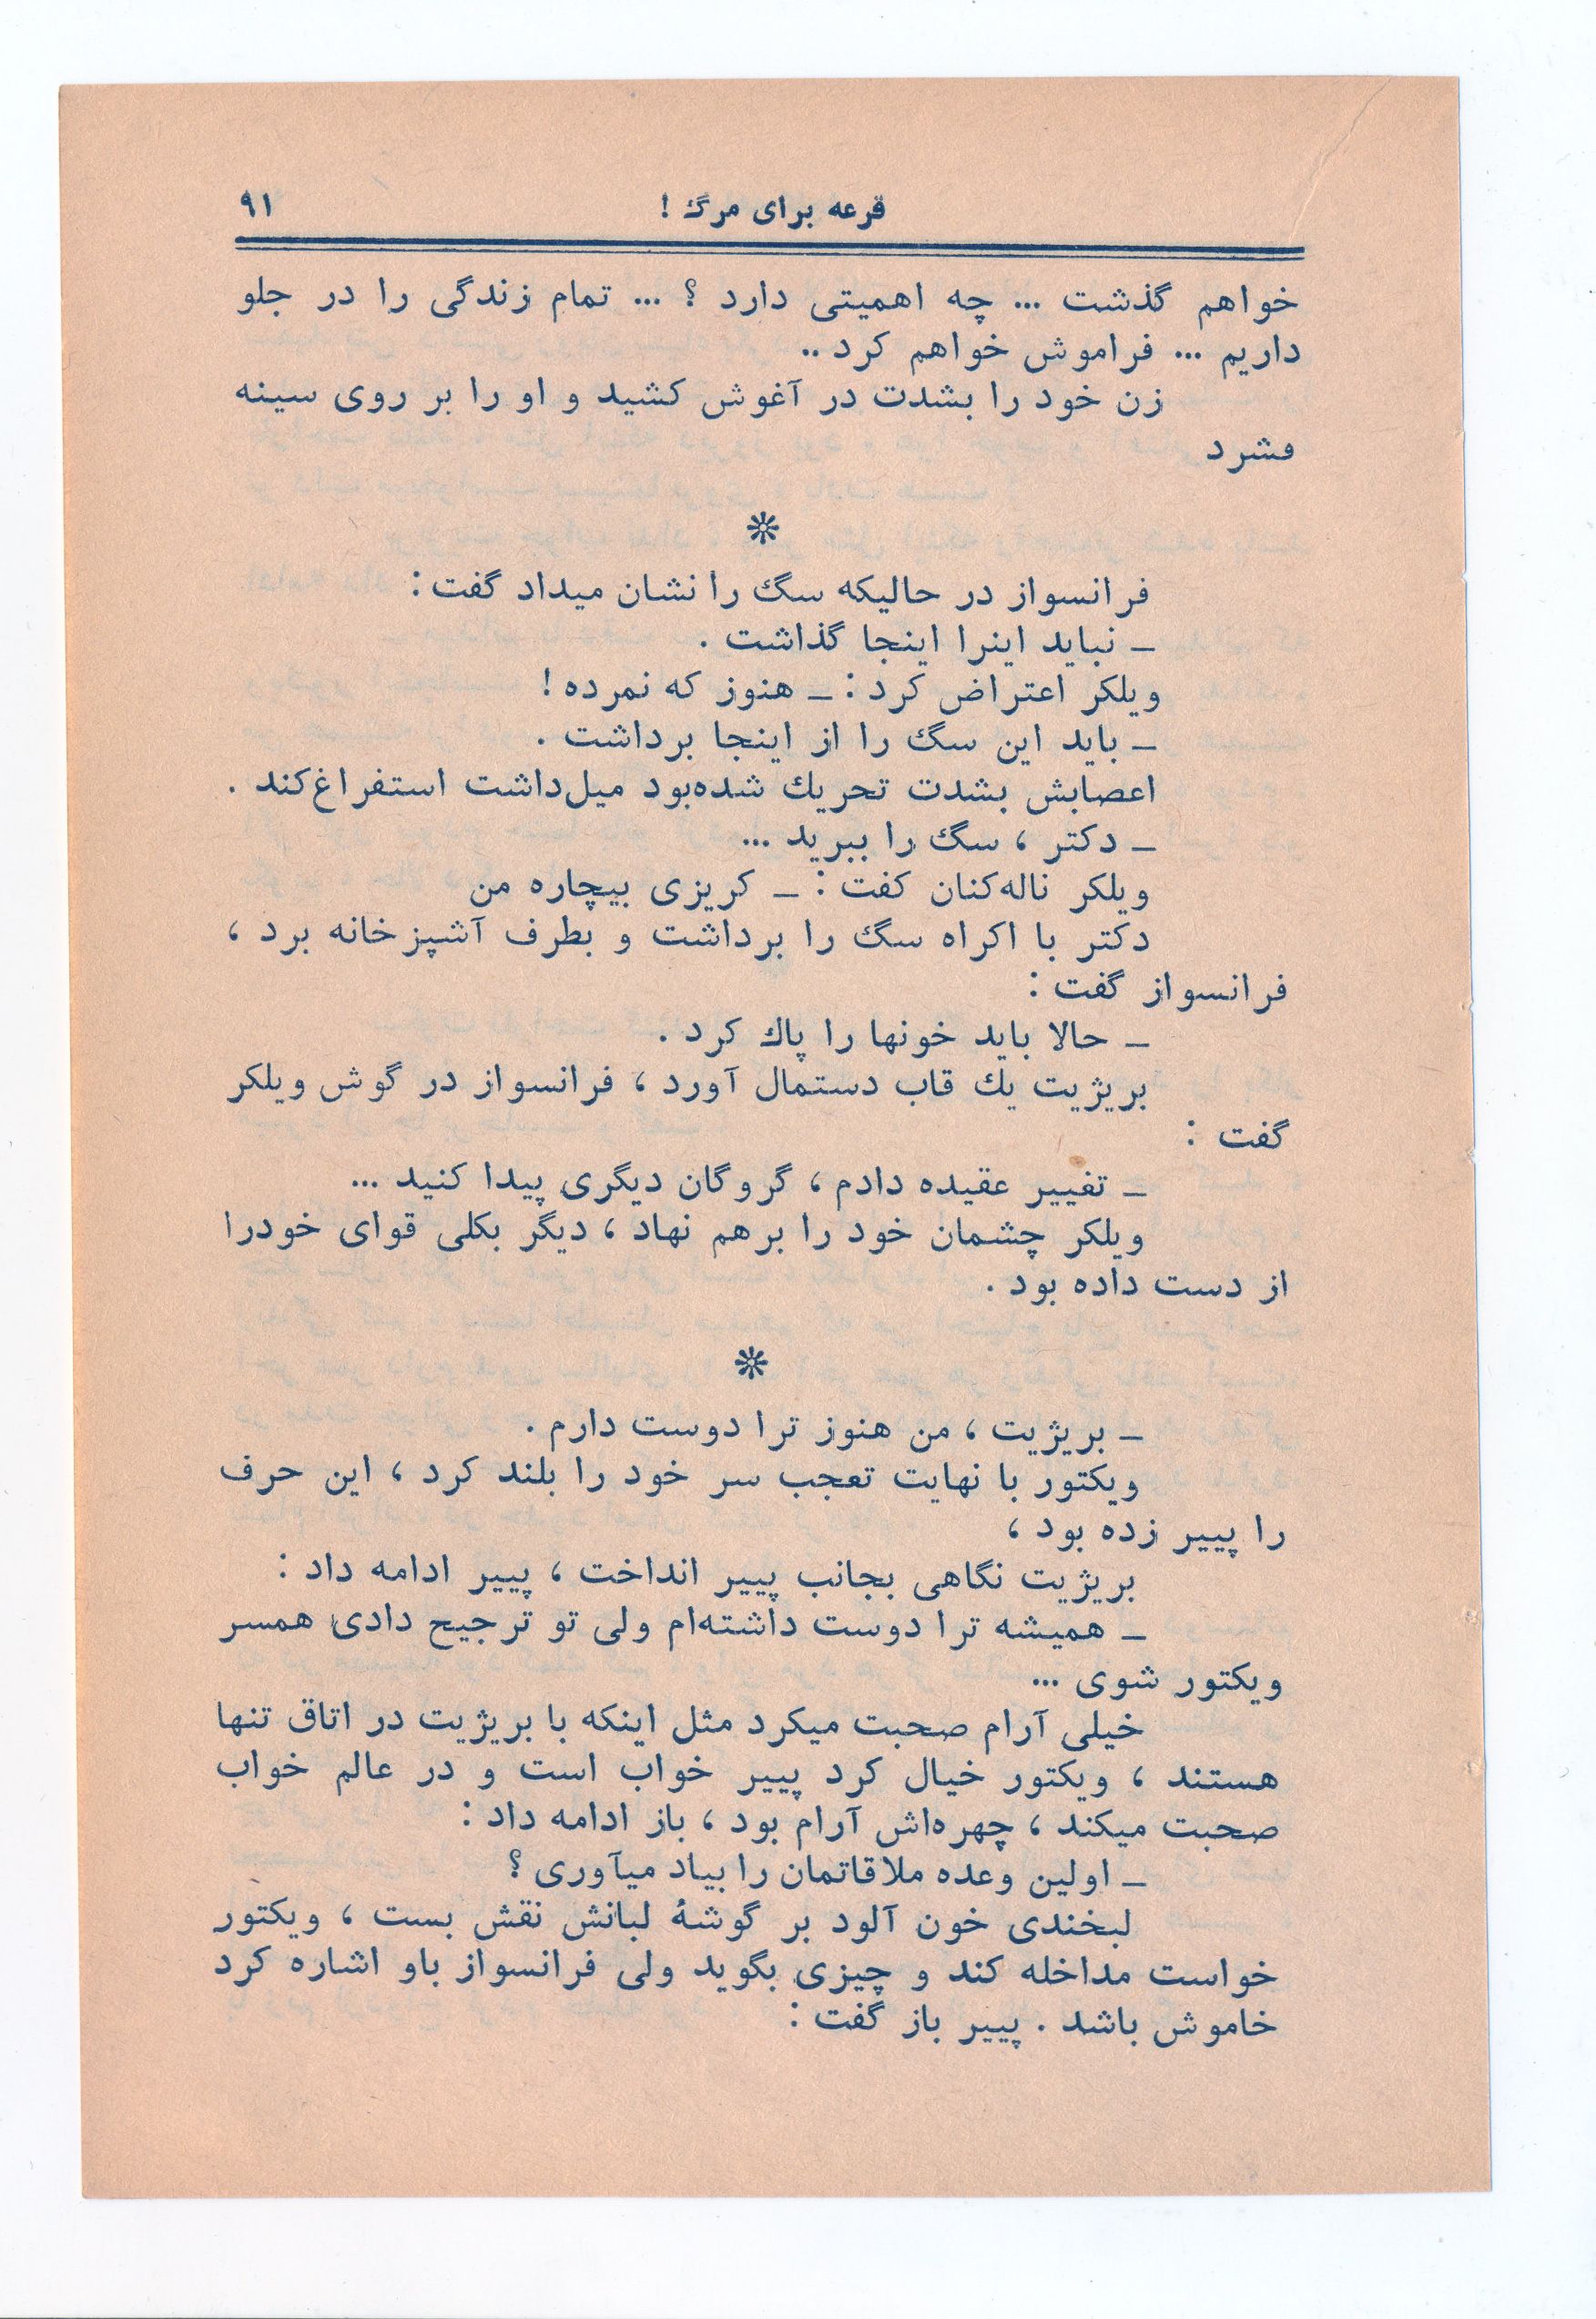 قرعه برای مرگ ! ۹۱
خواهم گذشت ... چه اهمیتی دارد ؟ ... تمام زندگی را در جلو
داریم ... فراموش خواهم کرد ..
زن خود را بشدت در آغوش کشید و او را بر روی سینه
فشرد
❊
فرانسواز در حالیکه سگ را نشان میداد گفت :
ـ نباید اینرا اینجا گذاشت .
ویلکر اعتراض کرد : ـ هنوز که نمرده !
ـ باید این سگ را از اینجا برداشت .
اعصابش بشدت تحریك شده‌بود میل‌داشت استفراغ‌کند .
ـ دکتر ، سگ را ببرید ...
ویلکر ناله‌کنان کفت : ـ کریزی بیچاره من
دکتر با اکراه سگ را برداشت و بطرف آشپزخانه برد ،
فرانسواز گفت :
ـ حالا باید خونها را پاك کرد .
بریژیت یك قاب دستمال آورد ، فرانسواز در گوش ویلکر
گفت :
ـ تفییر عقیده دادم ، گروگان دیگری پیدا کنید ...
ویلکر چشمان خود را برهم نهاد ، دیگر بکلی قوای خودرا
از دست داده بود .
❊
ـ بریژیت ، من هنوز ترا دوست دارم .
ویکتور با نهایت تعجب سر خود را بلند کرد ، این حرف
را پییر زده بود ،
بریژیت نگاهی بجانب پییر انداخت ، پییر ادامه داد :
ـ همیشه ترا دوست داشته‌ام ولی تو ترجیح دادی همسر
ویکتور شوی ...
خیلی آرام صحبت میکرد مثل اینکه با بریژیت در اتاق تنها
هستند ، ویکتور خیال کرد پییر خواب است و در عالم خواب
صحبت میکند ، چهره‌اش آرام بود ، باز ادامه داد :
ـ اولین وعده ملاقاتمان را بیاد میآوری ؟
لبخندی خون آلود بر گوشهٔ لبانش نقش بست ، ویکتور
خواست مداخله کند و چیزی بگوید ولی فرانسواز باو اشاره کرد
خاموش باشد . پییر باز گفت :